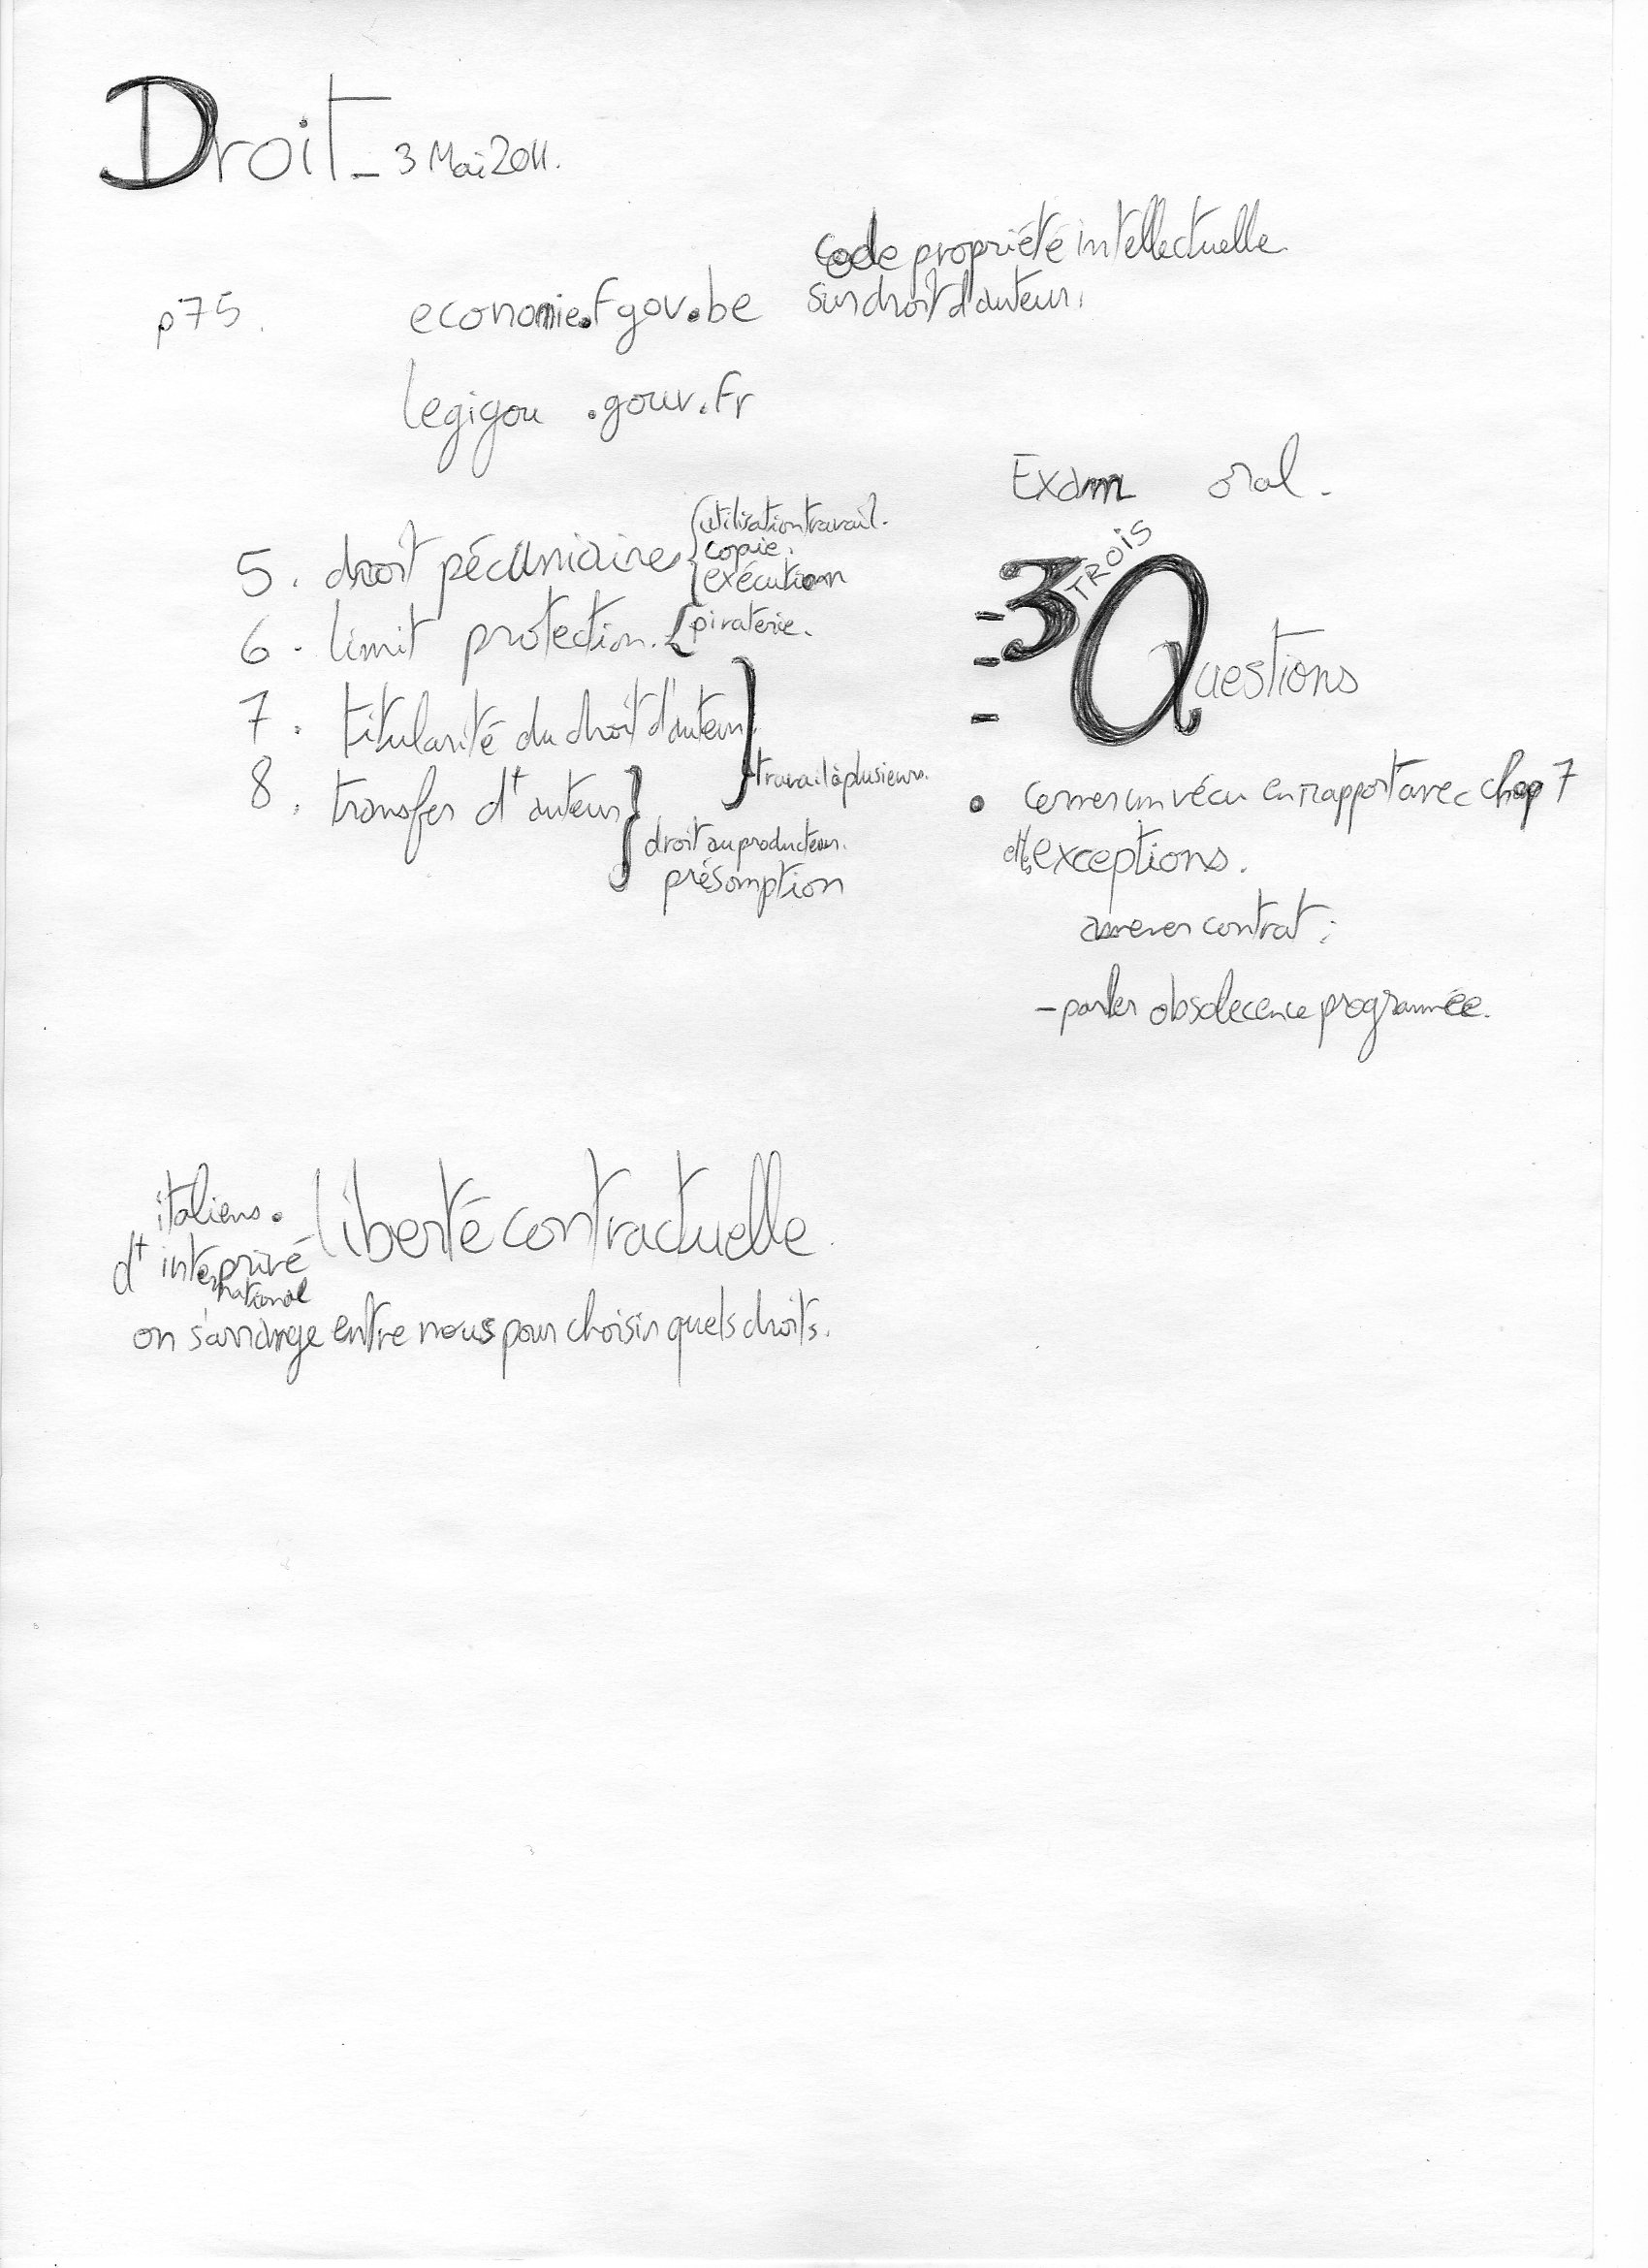 Droit - 3 Mai 2011.
code propriété intellectuelle
sur droit d'auteur.
p75.
economie.fgov.be
legigou .gouv.fr
Exam oral.
5. droit pécuniaire { utilisation travail.
copie.
exécution
6. limit protection. { piraterie.
7. titularité du droit d'auteur }
travail à plusieurs.
8. transfer dt auteur }
droit au producteur.
présomption
- 3 TROIS Questions
-
-
• cerner un vécu en rapport avec chap 7
exceptions.
amener contrat :
- parler obsolecence programmée.
italiens. liberté contractuelle.
dt inter privé
national
on s'arrange entre nous pour choisir quels droits.